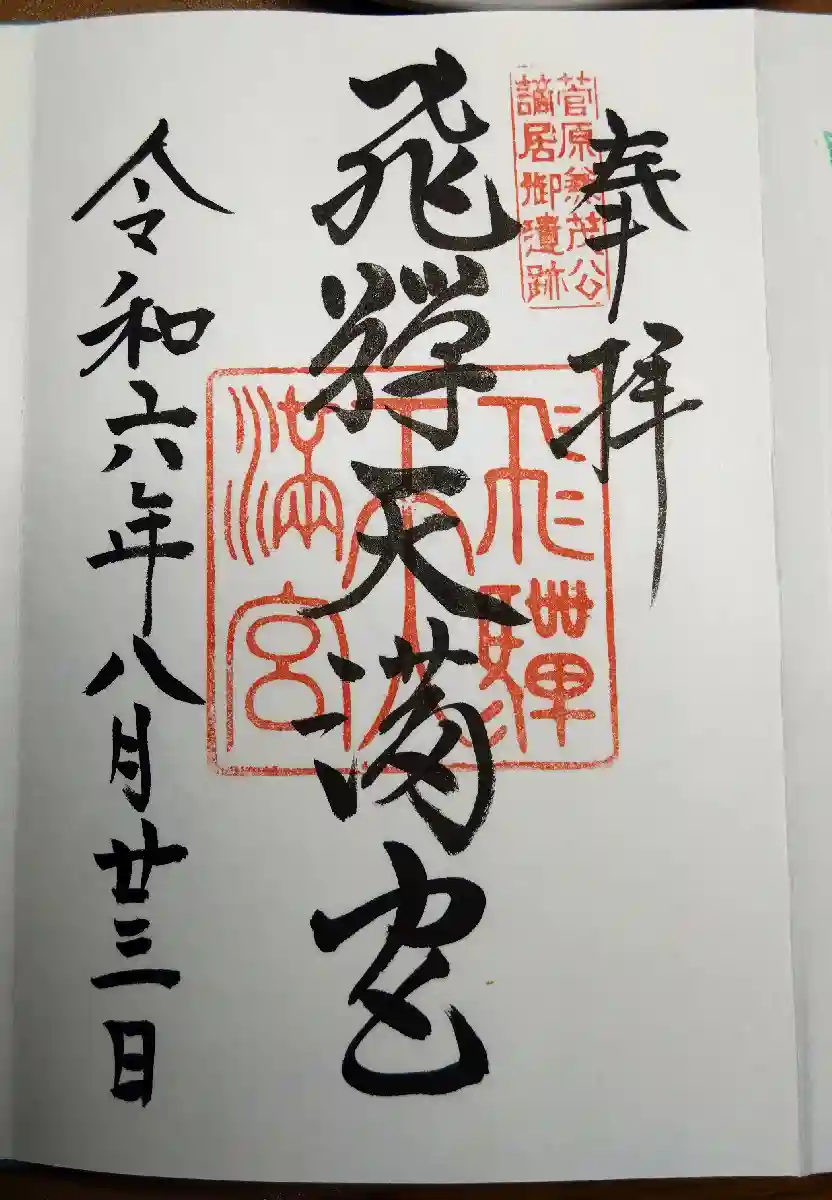 奉拝
菅原兼茂公
謫居御遺跡
飛騨天満宮
飛騨天満宮
令和六年八月廿三日